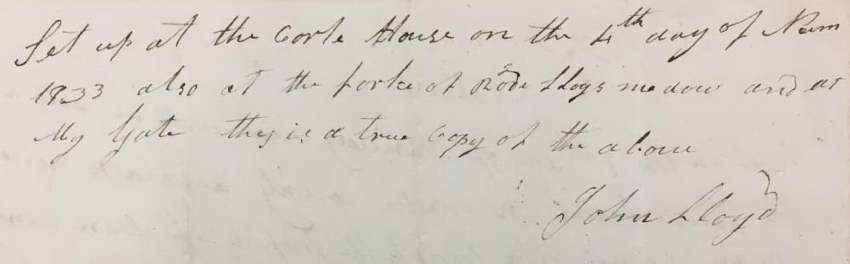 Set up at the Corte House on the 4th day of Nvm
1833 also at the forke of Rode Lloys medow and at
My Gate this is a true Copy of the above
John Lloyd